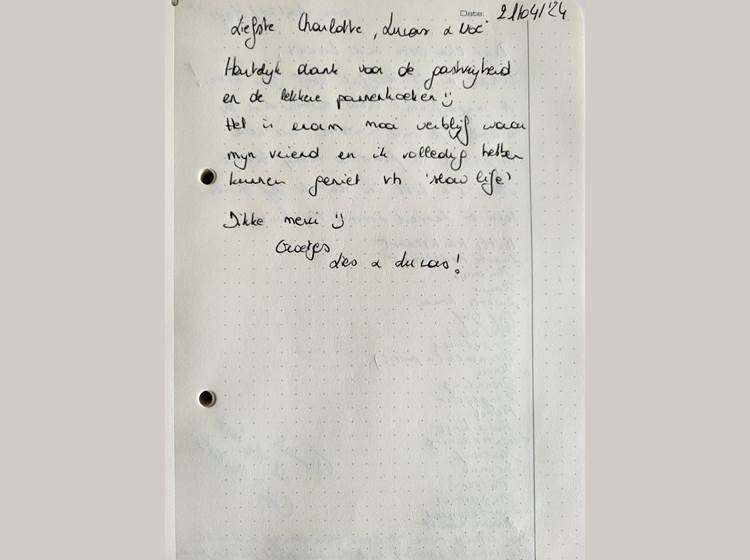 Date: 21/04/24
Liefste Charlotte, Lucas & Noé
Hartelijk dank voor de gastvrijheid
en de lekkere pannenkoeken :)
Het is enorm mooi verblijf waar
mijn vriend en ik volledig hebben
kunnen geniet vh 'slow life'
Dikke merci :)
Groetjes
Lies & Lucas!